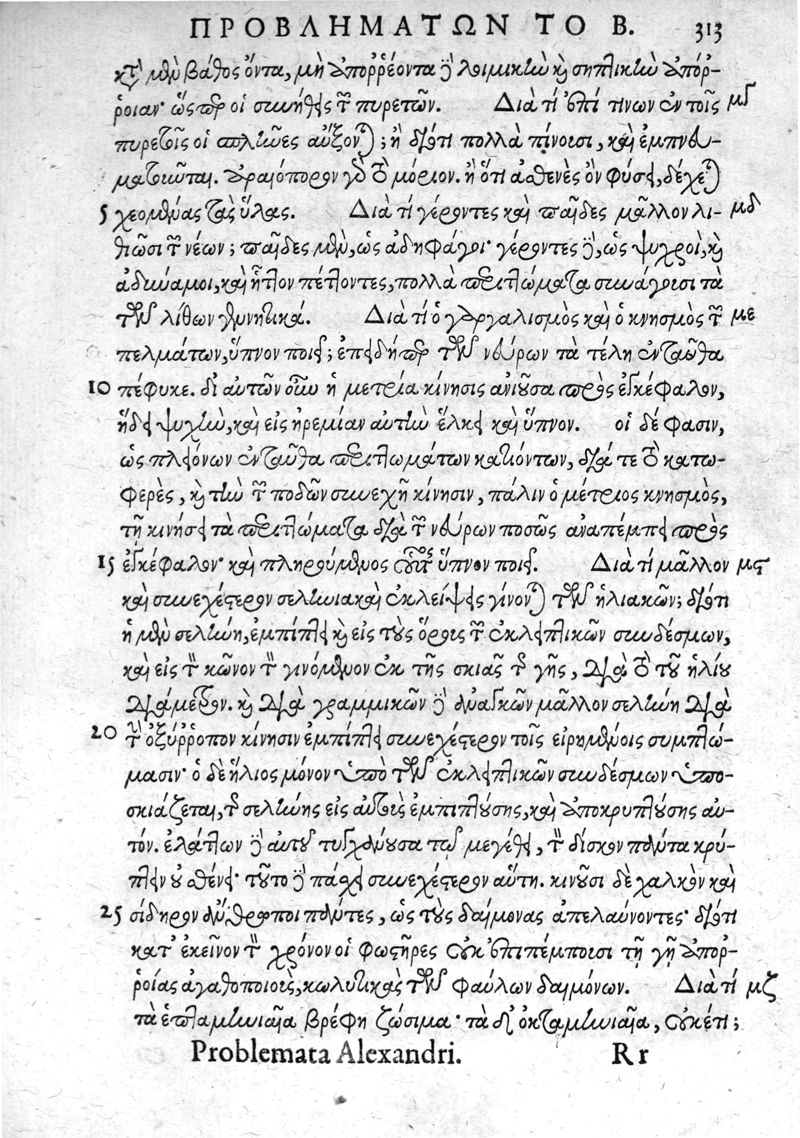 ΠΡΟΒΛΗΜΑΤΩΝ ΤΟ Β. 313
κατὰ μὲν βάθος ὄντα, μὴ ἀπορρέοντα δὲ λοιμικὴν καὶ σηπτικὴν ἀπόρ-
ροιαν· ὥσπερ οἱ συνήθεις τῶν πυρετῶν. Διὰ τί ἐπί τινων ἐν τοῖς μγ
πυρετοῖς οἱ σπλῆνες αὔξονται; ἢ διότι πολλὰ πίνουσι, καὶ ἐμπνευ-
ματοῦται. ἀραιόπορον γὰρ τὸ μόριον. ἢ ὅτι ἀσθενὲς ὂν φύσει, δέχεται
5 χεομένας τὰς ὕλας. Διὰ τί γέροντες καὶ παῖδες μᾶλλον λι- μδ
θιῶσι τῶν νέων; παῖδες μὲν, ὡς ἀδηφάγοι· γέροντες δὲ, ὡς ψυχροὶ, καὶ
ἀδύναμοι, καὶ ἧττον πέττοντες, πολλὰ περιττώματα συνάγουσι τὰ
τῶν λίθων γεννητικά. Διὰ τί ὁ γαργαλισμὸς καὶ ὁ κνησμὸς τῶν με
πελμάτων, ὕπνον ποιεῖ; ἐπειδήπερ τῶν νεύρων τὰ τέλη ἐνταῦθα
10 πέφυκε. δι αὐτῶν οὖν ἡ μετρία κίνησις ἀνιοῦσα πρὸς ἐγκέφαλον,
ἥδει ψυχὴν, καὶ εἰς ἠρεμίαν αὐτὴν ἕλκει καὶ ὕπνον. οἱ δέ φασιν,
ὡς πλειόνων ἐνταῦθα περιττωμάτων κατιόντων, διά τε τὸ κατω-
φερὲς, καὶ τὴν τῶν ποδῶν συνεχῆ κίνησιν, πάλιν ὁ μέτριος κνησμὸς,
τῇ κινήσει τὰ περιττώματα διὰ τῶν νεύρων ποσῶς ἀναπέμπει πρὸς
15 ἐγκέφαλον· καὶ πληρούμενος οὗτος ὕπνον ποιεῖ. Διὰ τί μᾶλλον μϛ
καὶ συνεχέστερον σεληνιακαὶ ἐκλείψεις γίνονται τῶν ἡλιακῶν; διότι
ἡ μὲν σελήνη, ἐμπίπτει καὶ εἰς τοὺς ὅρους τῶν ἐκλειπτικῶν συνδέσμων,
καὶ εἰς τὸν κῶνον τὸν γινόμενον ἐκ τῆς σκιᾶς τῆς γῆς, διὰ τὸ τοῦ ἡλίου
διάμετρον. καὶ διὰ γραμμικῶν δὲ ἀναγκῶν μᾶλλον σελήνη διὰ
20 τὴν ὀξύρροπον κίνησιν ἐμπίπτει συνεχέστερον τοῖς εἰρημένοις συμπτώ-
μασιν· ὁ δὲ ἥλιος μόνον ὑπὸ τῶν ἐκλειπτικῶν συνδέσμων ὑπο-
σκιάζεται, τῆς σελήνης εἰς αὐτοὺς ἐμπιπτούσης, καὶ ἀποκρυπτούσης αὐ-
τόν. ἐλάττων δὲ αὐτοῦ τυγχάνουσα τῷ μεγέθει, τὸν δίσκον πάντα κρύ-
πτειν οὐ σθένει· τοῦτο δὲ πάσχει συνεχέστερον αὕτη. κινοῦσι δὲ χαλκὸν καὶ
25 σίδηρον ἄνθρωποι πάντες, ὡς τοὺς δαίμονας ἀπελαύνοντες· διότι
κατ' ἐκεῖνον τὸν χρόνον οἱ φωστῆρες οὐκ ἐπιπέμπουσι τῇ γῇ ἀπορ-
ροίας ἀγαθοποιοὺς, κωλυτικὰς τῶν φαύλων δαιμόνων. Διὰ τί μζ
τὰ ἑπταμηνιαῖα βρέφη ζώσιμα· τὰ δὲ ὀκταμηνιαῖα, οὐκέτι;
Problemata Alexandri. Rr